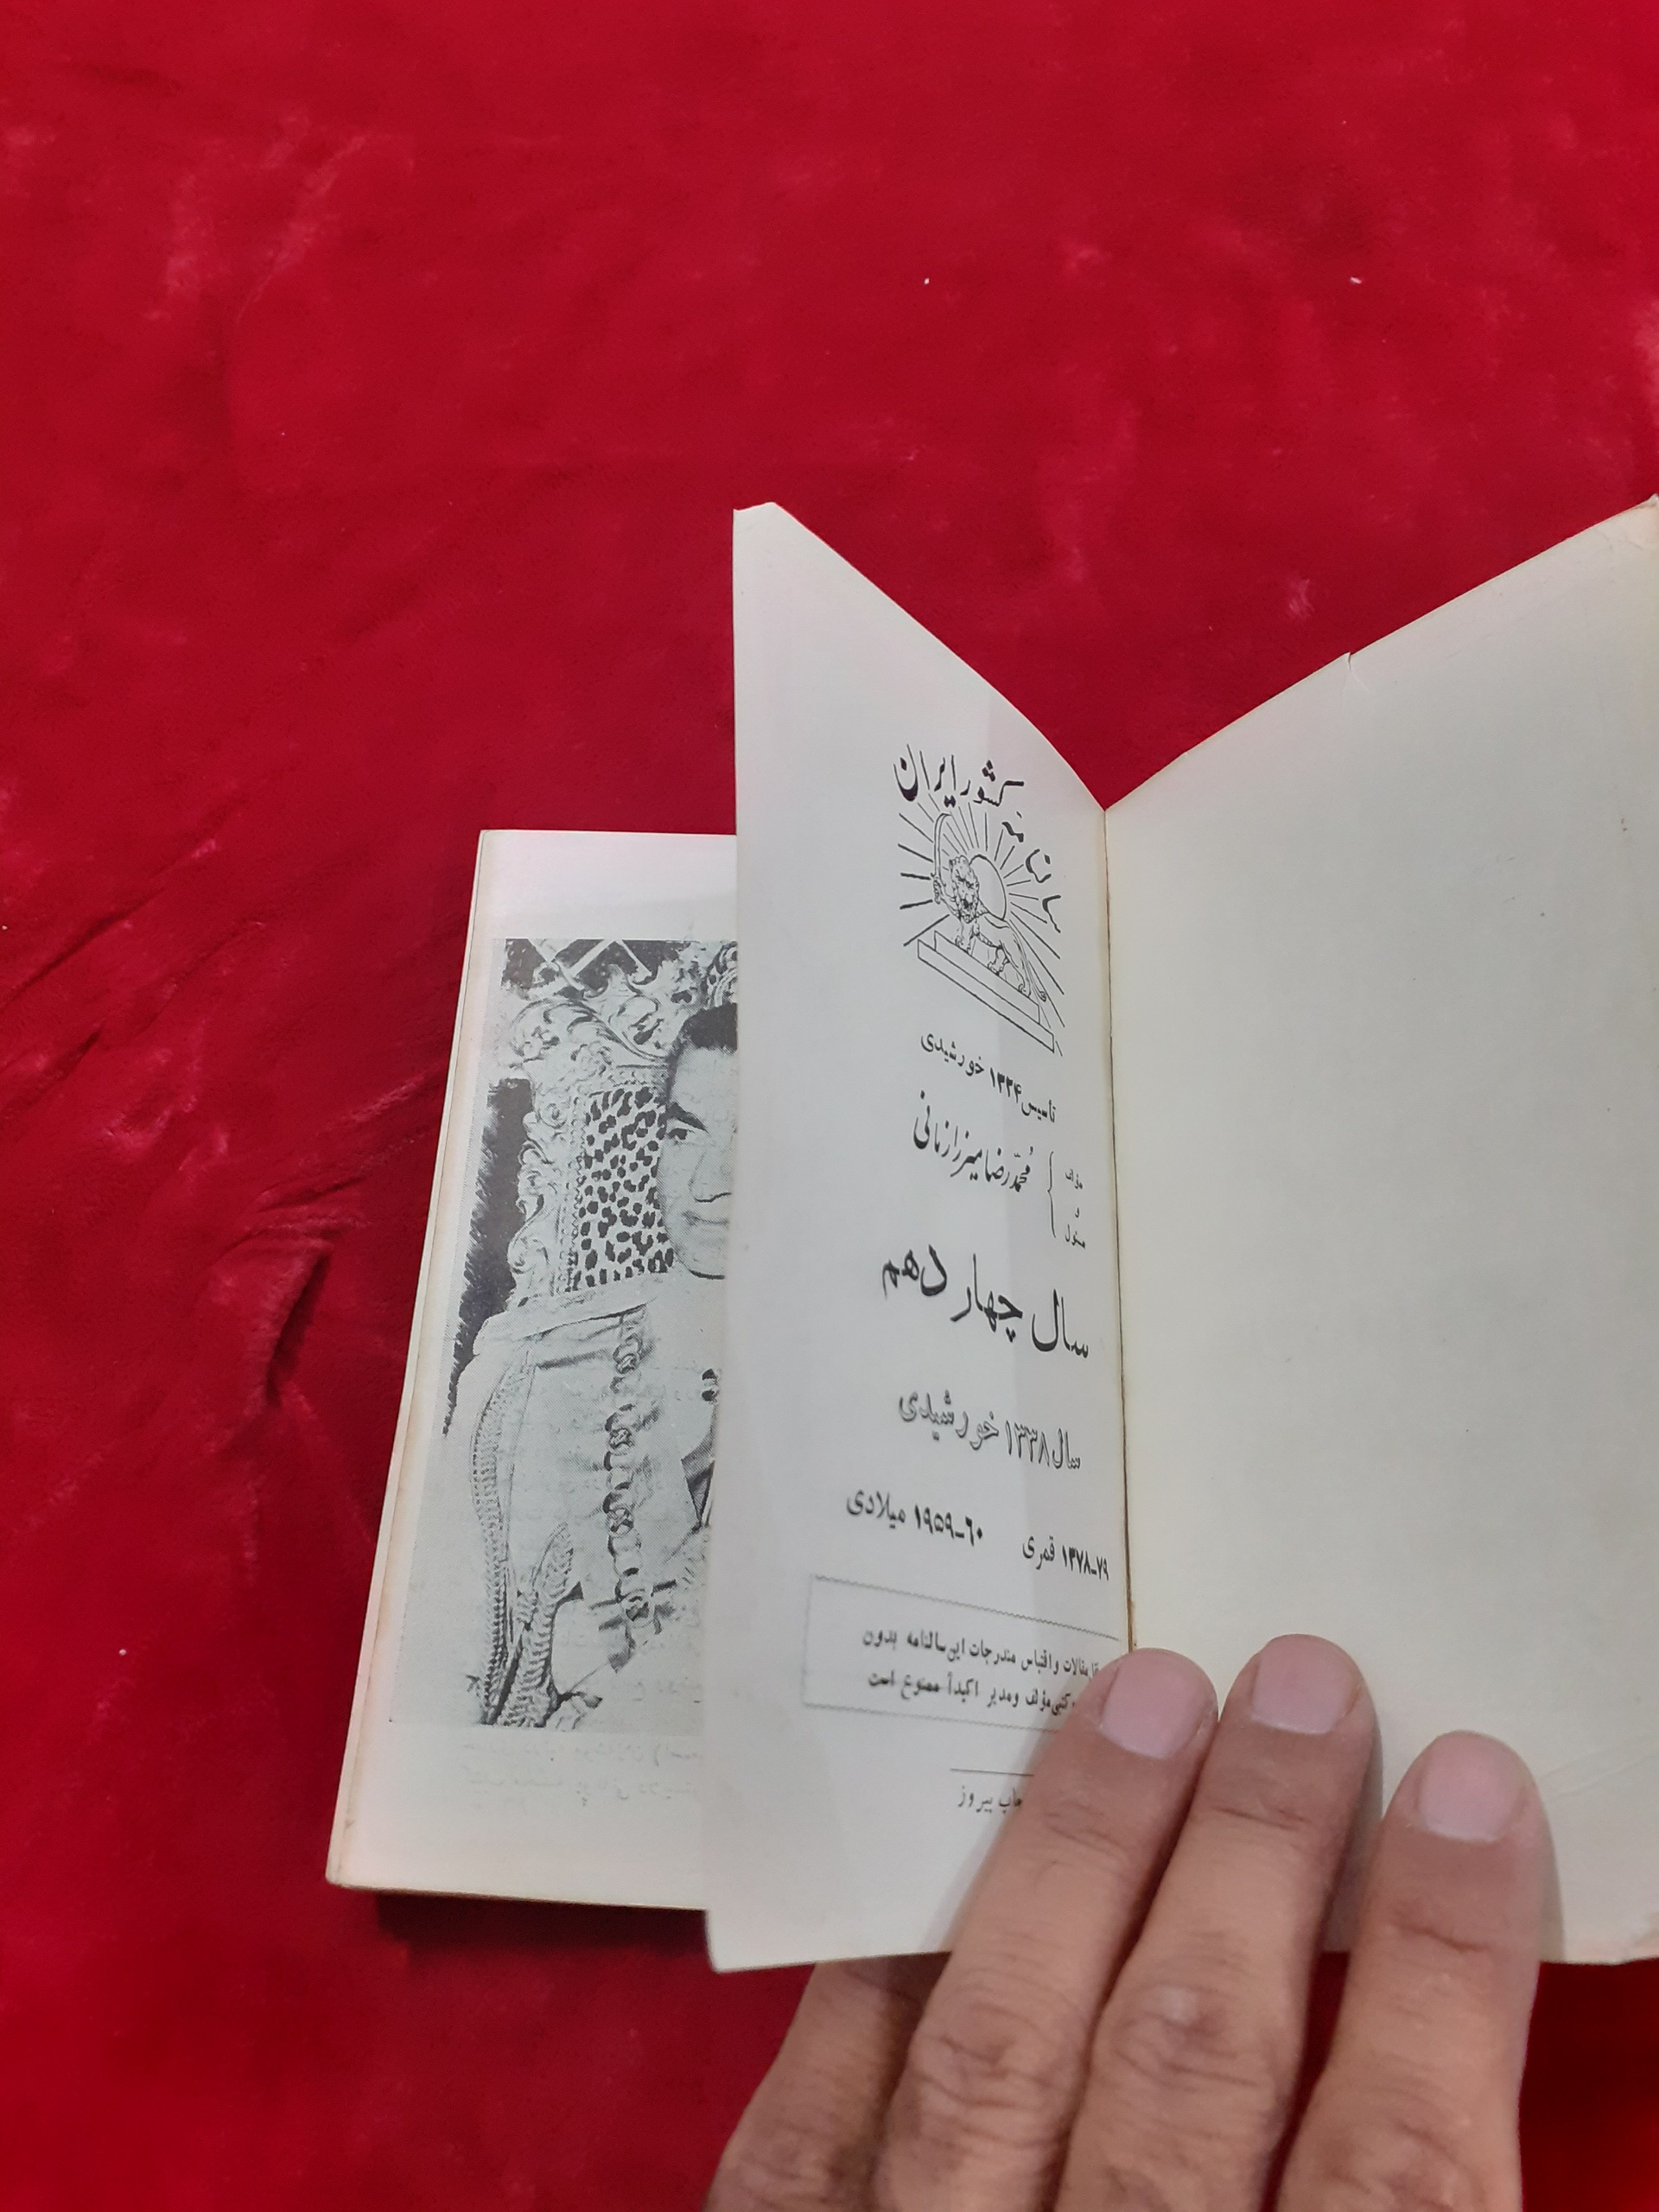 سالنامه کشور ایران
تاسیس ۱۳۲۴ خورشیدی
مؤلف
و
مسئول
محمدرضا میرزازمانی
سال چهاردهم
سال ۱۳۳۸ خورشیدی
۱۳۷۸-۷۹ قمری ۱۹۵۹-۶۰ میلادی
مقالات و اقتباس مندرجات این سالنامه بدون
مؤلف و مدیر اکیداً ممنوع است
چاپ پیروز